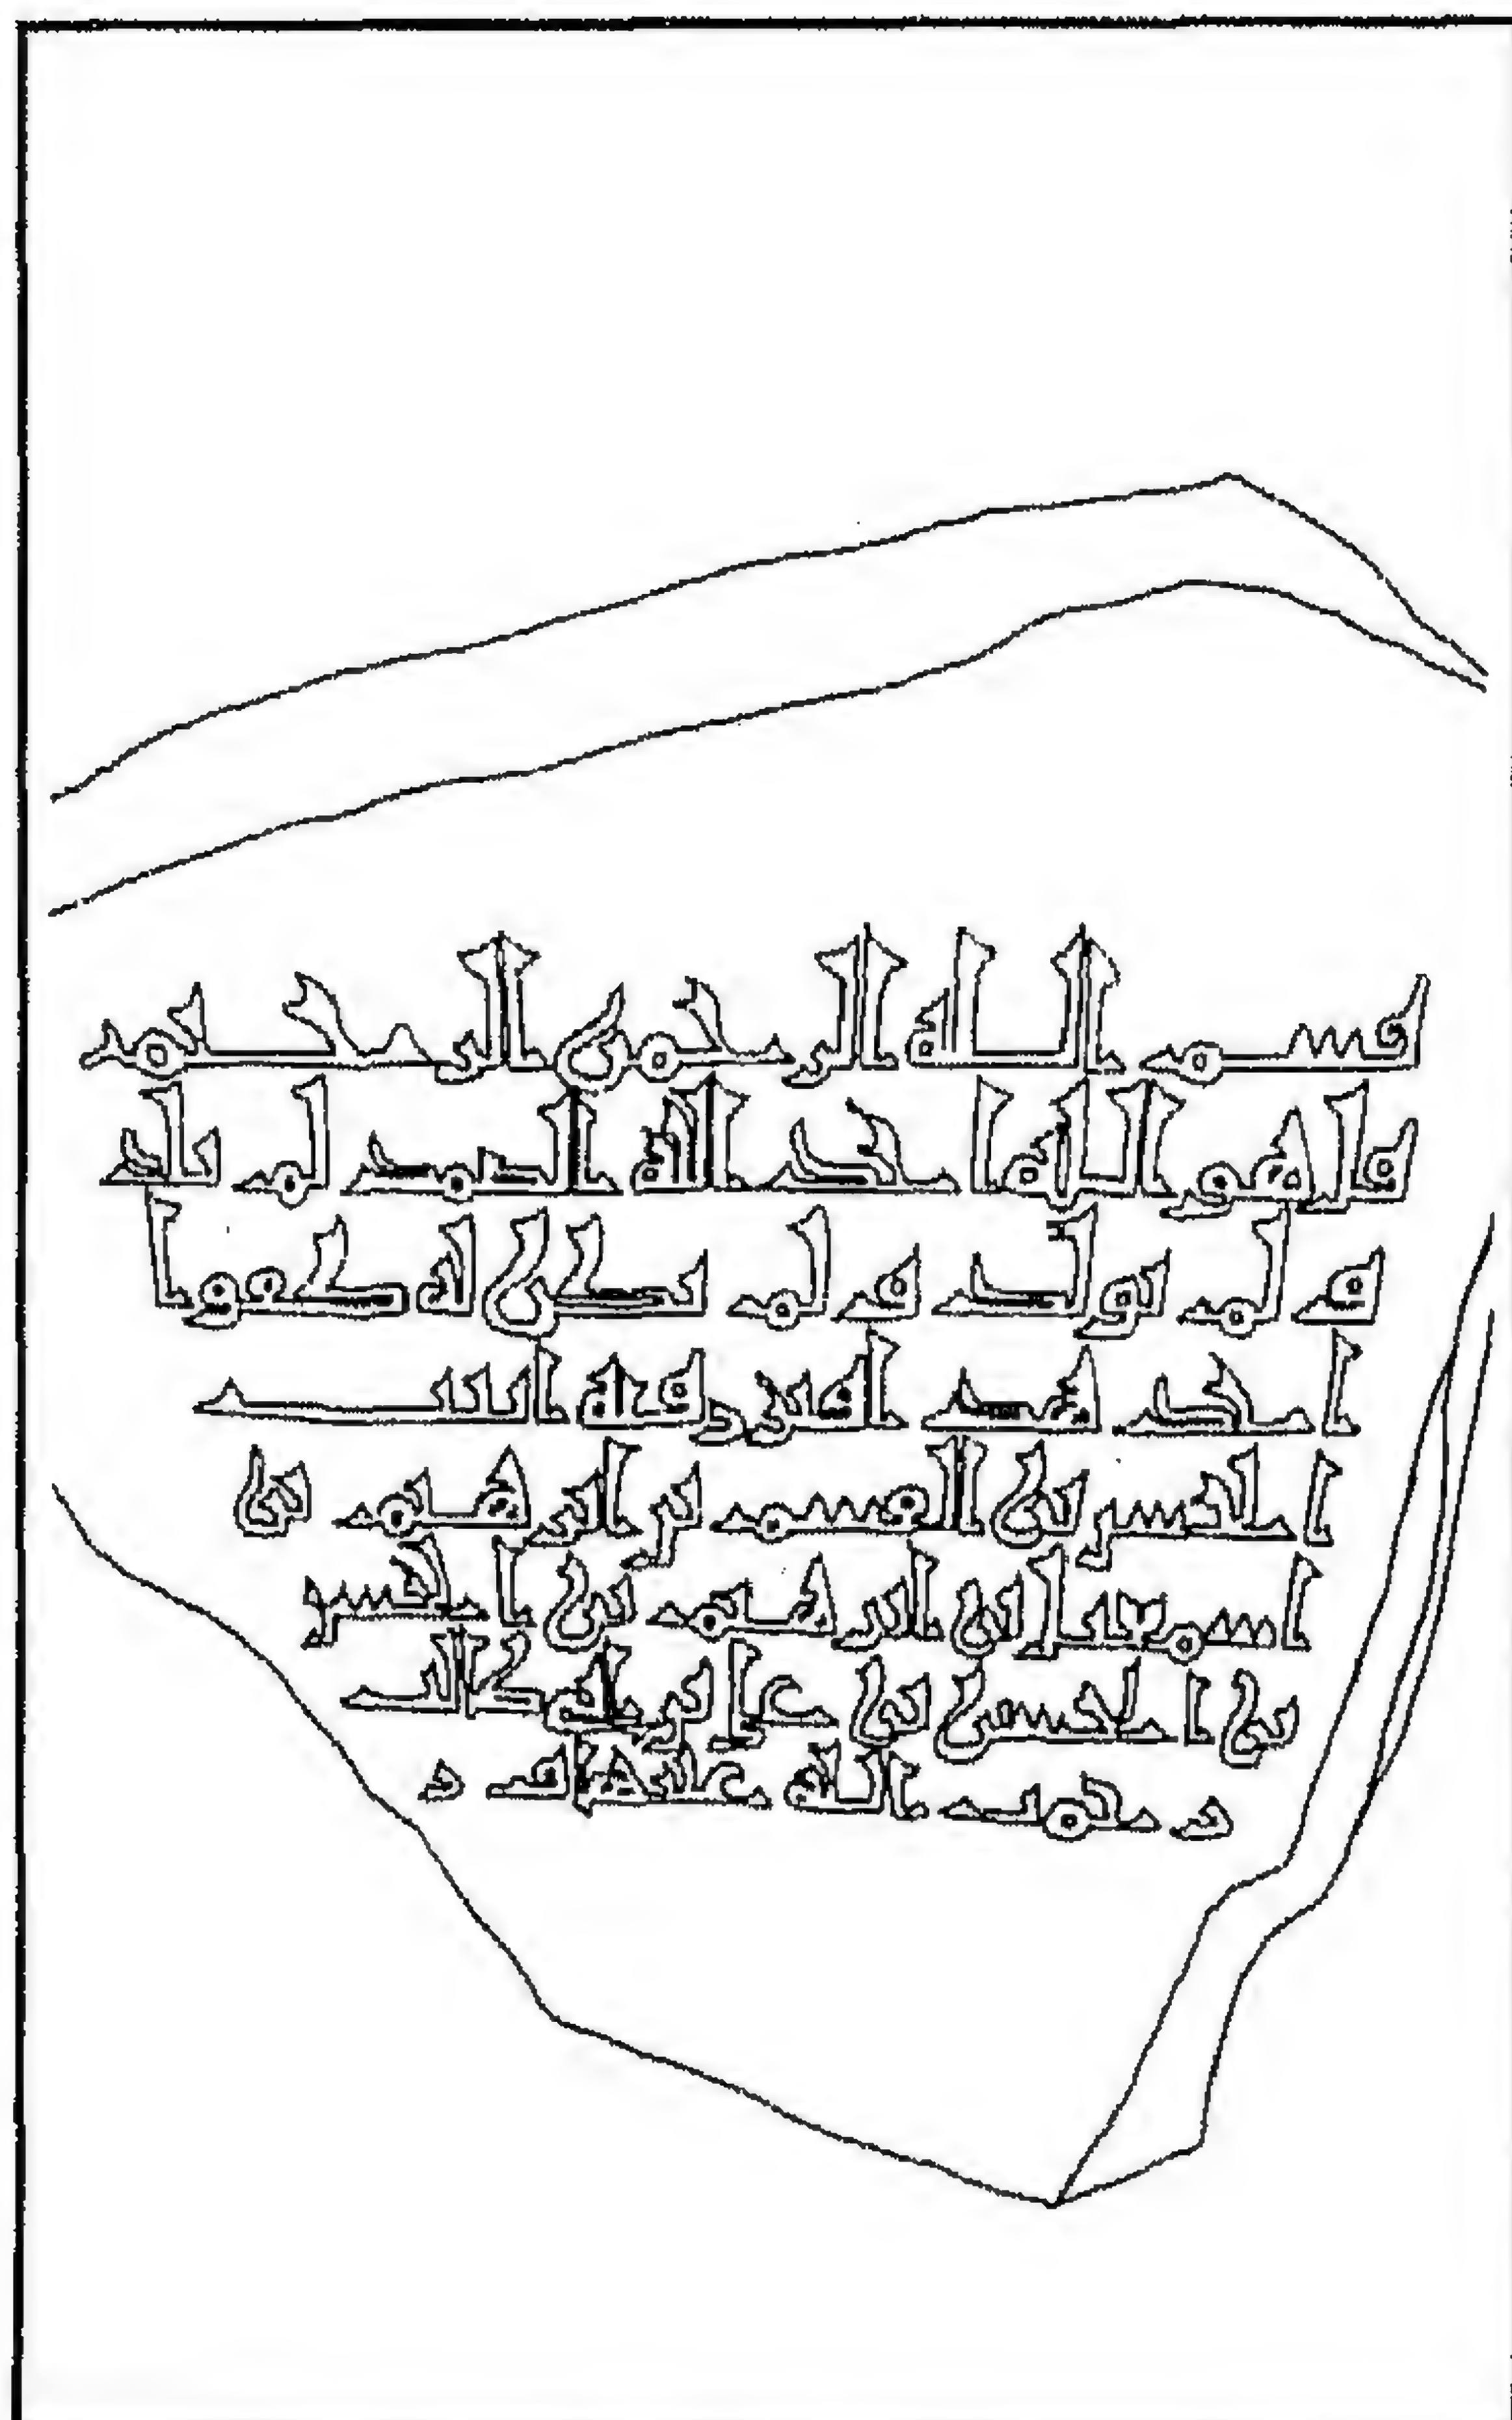 بسم الله الرحمن الرحيم
قل هو الله احد الله الصمد لم يلد
و لم يولد و لم يكن له كفوا
احد هذا قبر رقية ابنت
الحسن بن القسم بن ابرهيم بن
اسمعيل بن ابرهيم بن الحسن
بن الحسن بن علي بن ابي طالب
محمد الله عليهم